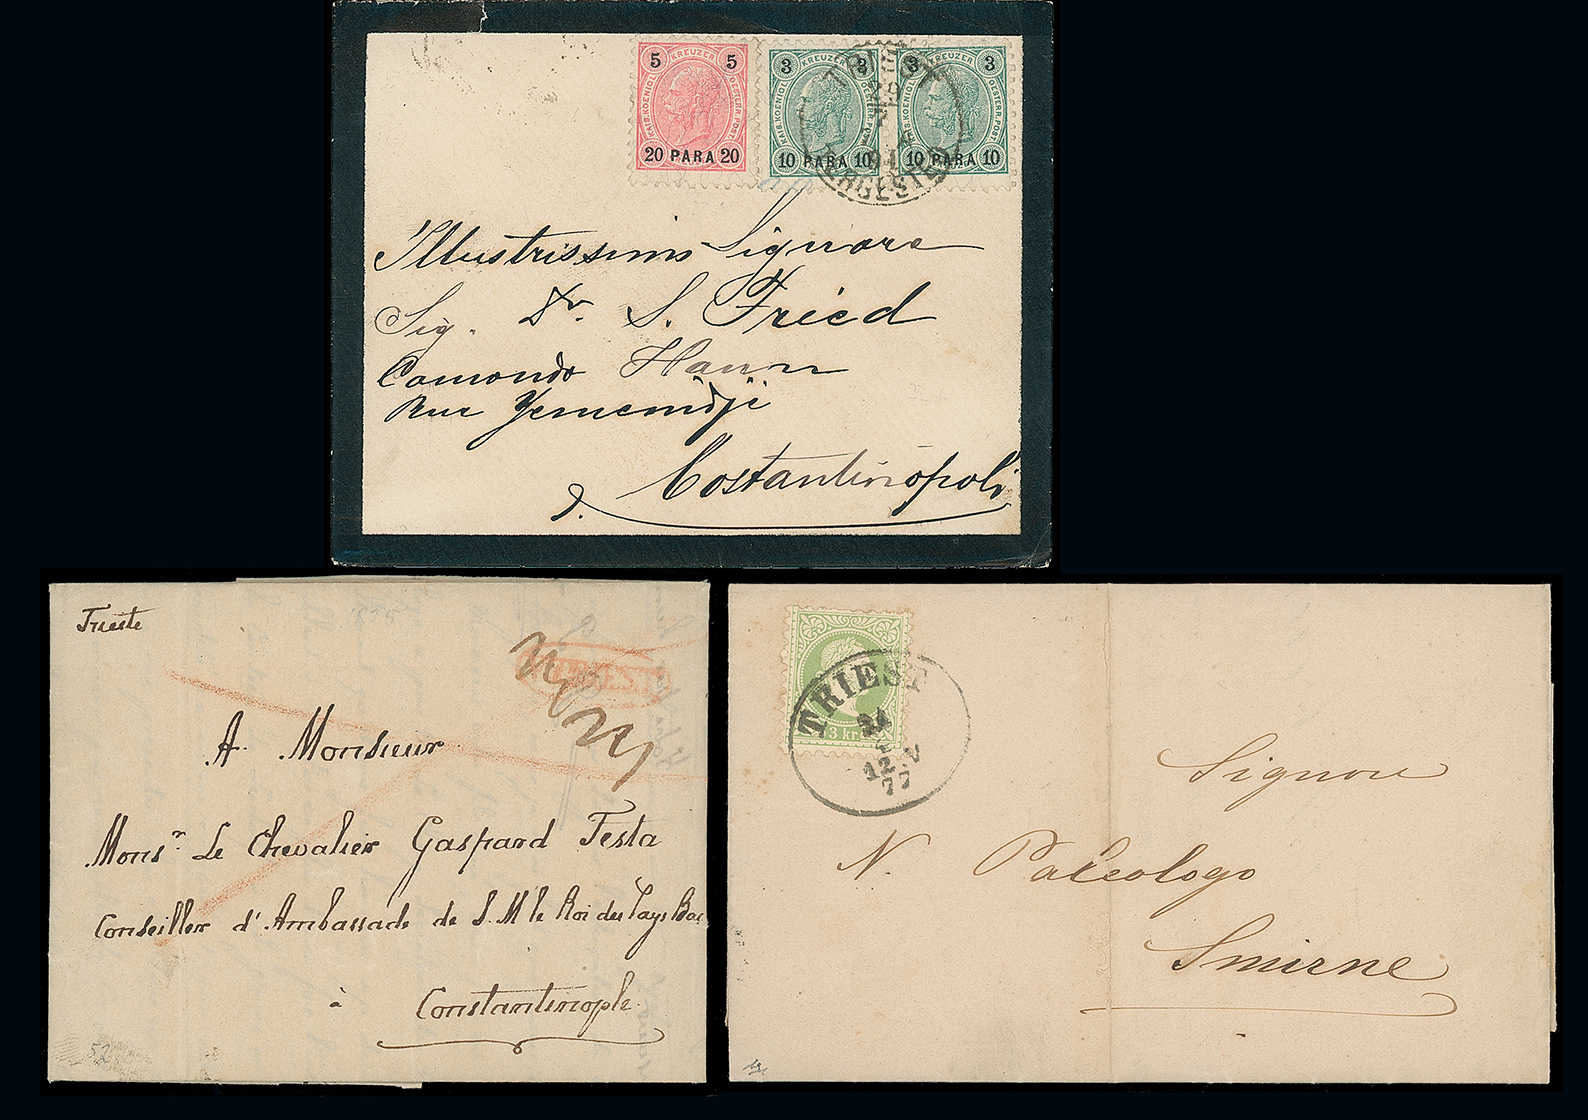 5 KREUZER 5
KAIS. KOENIGL. OESTERR. POST.
20 PARA 20
3 KREUZER 3
KAIS. KOENIGL. OESTERR. POST.
10 PARA 10
3 KREUZER 3
KAIS. KOENIGL. OESTERR. POST.
10 PARA 10
TERGESTEO
Illustrissimo Signore
Sig. Dr. S. Fried
Camondo Hann
Rue Yemenidji
Costantinopoli
Trieste
TRIEST
A Monsieur
Monsr Le Chevalier Gaspard Testa
Conseiller d'Ambassade de S. M le Roi des Pays Bas
à Constantinople
52
3 kr.
TRIEST
12 V
77
Signore
N. Paleologo
Smirne